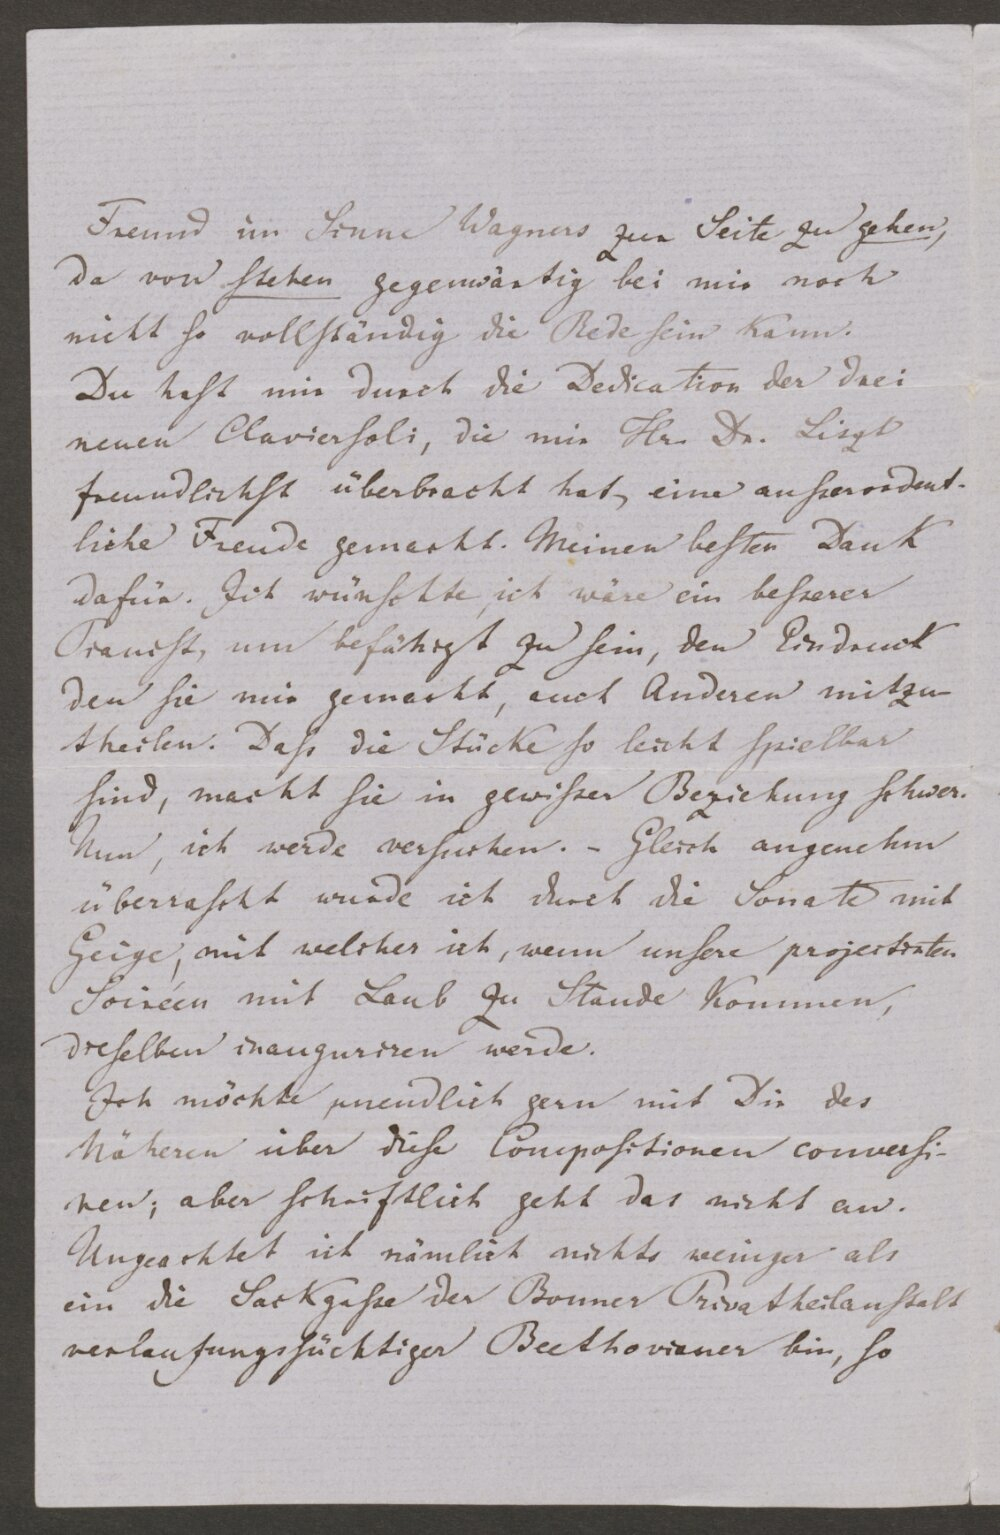 Freund im Sinne Wagners zur Seite zu gehen,
da von stehen gegenwärtig bei mir noch
nicht so vollständig die Rede sein kann.
Du hast mir durch die Dedication der drei
neuen Claviersoli, die mir Hr. Dr. Liszt
freundlichst überbracht hat, eine ausserordent-
liche Freude gemacht. Meinen besten Dank
dafür. Ich wünschte, ich wäre ein besserer
Pianist, um befähigt zu sein, den Eindruck
den sie mir gemacht, auch Anderen mitzu-
theilen. Dass die Stücke so leicht spielbar
sind, macht sie in gewisser Beziehung schwer.
Nun, ich werde versuchen. – Gleich angenehm
überrascht wurde ich durch die Sonate mit
Geige, mit welcher ich, wenn unsere projectirten
Soiréen mit Laub zu Stande kommen,
dieselben inauguriren werde.
Ich möchte unendlich gern mit Dir des
Näheren über diese Compositionen conversi-
ren; aber schriftlich geht das nicht an.
Ungeachtet ich nämlich nichts weniger als
ein die Sackgasse der Bonner Privatheilanstalt
verlaufungssüchtiger Beethovianer bin, so